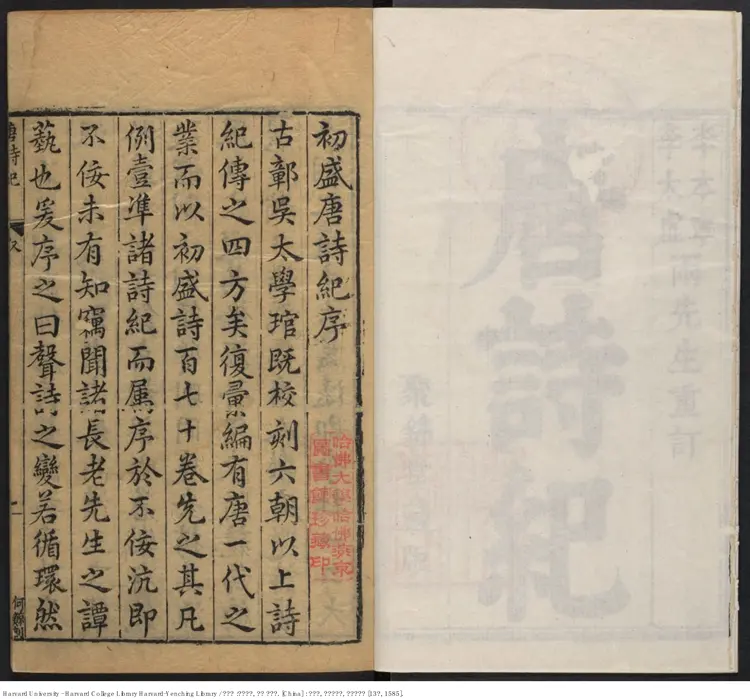 李本寧
兩先生重訂
唐詩紀
初盛唐詩紀序
哈佛大學哈佛燕京
圖書館珍藏印
古鄣吳太學琯既校刻六朝以上詩
紀傳之四方矣復彙編有唐一代之
業而以初盛詩百七十卷先之其凡
例壹準諸詩紀而属序於不佞沆即
不佞未有知竊聞諸長老先生之譚
藝也爰序之曰聲詩之變若循環然
唐詩紀
Harvard University - Harvard College Library Harvard-Yenching Library / ??? :????, ?? ???. [China] : ???, ?????, ????? [13?, 1585].